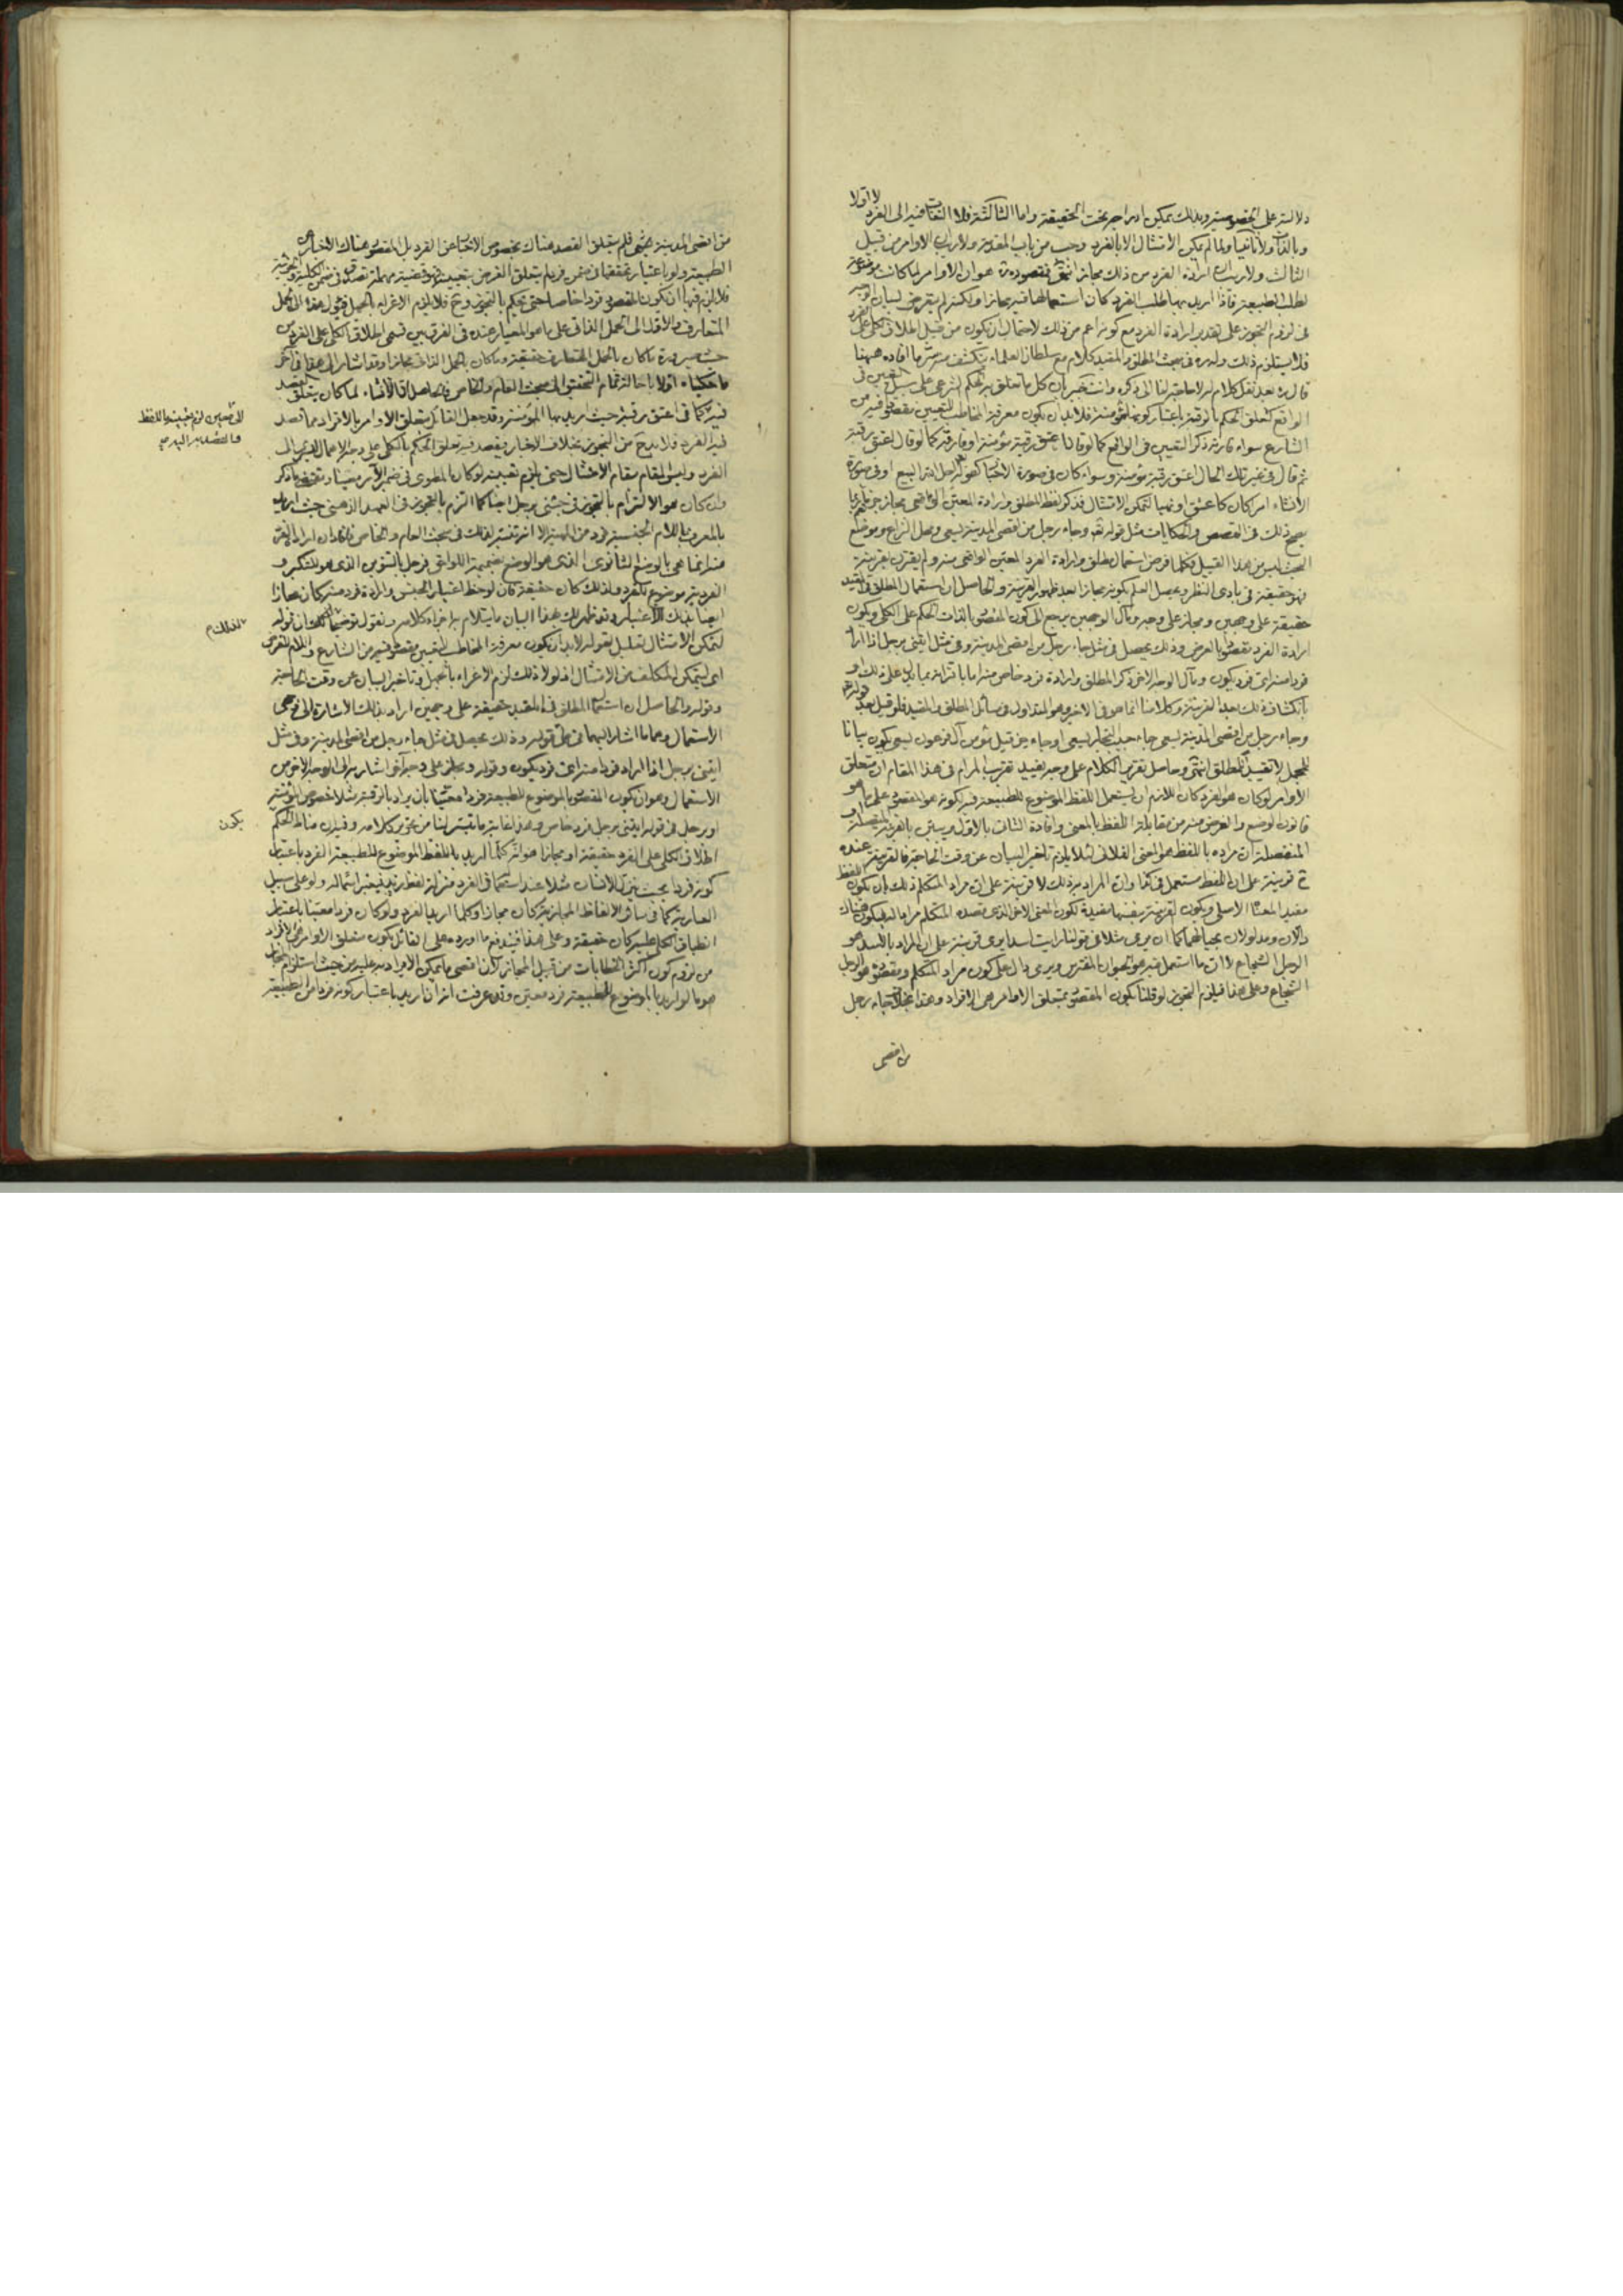 دلالته على الخصوصية وبذلك يمكن ادراجه تحت الحقيقة واما الثالثة فلا التفات فيه الى الفرد لا اولا
وبالذات ولا ثانيا ولما لم يمكن الامتثال الا بالفرد وجب من باب المقدمة ولا ريب ان الاوامر من قبيل
الثالث ولا ريب ان ارادة الفرد من ذلك مجاز انتهى فمقصوده ره هو ان الاوامر لما كانت موضوعة
لطلب الطبيعة فاذا اريد بها طلب الفرد كان استعمالها فيه مجازا ولكنه لم يتعرض لبيان الوجه
فى لزوم التجوز على تقدير ارادة الفرد مع كونه اعم من ذلك لاحتمال ان يكون من قبيل اطلاق الكلى على الفرد
فلا يستلزم ذلك وله ره فى مبحث المطلق والمقيد كلام مع سلطان العلماء ينكشف منه ما افاده ههنا
قال ره بعد نقل كلام له لا حاجة لنا الى ذكره وانت خبير بان كل ما تعلق به الحكم الشرعى على سبيل التعيين فى
الواقع كتعلق الحكم بالرقبة باعتبار كونها مؤمنة فلا بد ان يكون معرفة المخاطب للتعيين مقصودا فيه من
الشارع سواء قارنه ذكر التعيين فى الواقع كما لو قال اعتق رقبة مؤمنة او فارقه كما لو قال اعتق رقبة
ثم قال فى غير تلك الحال اعتق رقبة مؤمنة وسواء كان فى صورة الاخبار كقوله احل الله البيع او فى صورة
الانشاء امرا كان كاعتق او نهيا لتمكن الامتثال فذكر لفظ المطلق وارادة المعين الواقعى مجاز جزما
يصح ذلك فى القصص والحكايات مثل قوله تعه وجاء رجل من اقصى المدينة يسعى ومحل النزاع وموضع
البحث ليس من هذا القبيل فكلما فرض استعمال مطلق وارادة الفرد المعين الواقعى منه ولم يقترن بقرينة
فهو حقيقة فى بادى النظر ويحصل العلم بكونه مجازا بعد ظهور القرينة والحاصل ان استعمال المطلق فى المقيد
حقيقة على وجهين ومجاز على وجه ومآل الوجهين يرجع الى كون المقصود بالذات الحكم على الكلى وكون
ارادة الفرد مقصودا بالعرض وذلك يحصل فى مثل جاء رجل من اقصى المدينة وفى مثل ايتنى برجل اذا اراد
فردا منه اى فرد يكون ومآل الوجه الاخر ذكر المطلق وارادة فرد خاص منه اما باقترانه بما يدل على ذلك او
بانكشاف ذلك بعد القرينة وكلامنا انما هو فى الاخر وهو المتداول فى مسائل المطلق والمقيد فلو قيل بعد قوله تعه
وجاء رجل من اقصى المدينة يسعى جاء حبيب النجار يسعى او جاء حزقيل مؤمن آل فرعون يسعى يكون بيانا
للمجمل لا تقييدا للمطلق انتهى وحاصل تقرير الكلام على وجه يفيد تقريب المرام فى هذا المقام ان متعلق
الاوامر لو كان هو الفرد كان اللازم ان يستعمل اللفظ الموضوع للطبيعة فيه لكونه هو المقصود على ما هو
قانون الوضع والغرض منه من مقابلة اللفظ بالمعنى وافادة الثانى بالاول ويبين بالقرينة المتصلة او
المنفصلة ان مراده باللفظ هو المعنى الفلانى لئلا يلزم تاخير البيان عن وقت الحاجة فالقرينة عنده
ح قرينة على ان اللفظ مستعمل فى كذا وان المراد به ذلك لا قرينة على ان مراد المتكلم ذلك بان يكون اللفظ
مفيدا لمعناه الاصلى ويكون القرينة بنفسها مفيدة لكون المعنى الاخر الذى قصده المتكلم مرادا له فيكون هناك
دالان ومدلولان بحيالهما كما ان يرمى مثلا فى قولنا رايت اسدا يرمى قرينة على ان المراد بالاسد هو
الرجل الشجاع لا ان ما استعمل فيه هو الحيوان المفترس ويرمى دال على كون مراد المتكلم ومقصوده هو الرجل
الشجاع وعلى هذا فيلزم التجوز لو قلنا بكون المقصود بمتعلق الاوامر هى الافراد وهذا بخلاف جاء رجل
من اقصى
من اقصى المدينة يسعى فلم يتعلق القصد هناك بخصوص الاخبار عن الفرد بل المقصود هناك الاخبار عن
الطبيعة ولو باعتبار تحققها فى ضمن فرد لم يتعلق الغرض بتعيينه فهو قضية مهملة تصدق فى ضمن الكلية والجزئية
فلا يلزم فيها ان يكون المقصود فردا خاصا حتى يحكم بالتجوز وح فلا يلزم الاغراء بالجهل فيؤل هذا الى الحمل
المتعارف والاول الى الحمل الذاتى على ما هو المعيار عنده فى الفرق بين قسمى اطلاق الكلى على الفرد من
حيث صيرورة ما كان بالحمل المتعارف حقيقة وما كان بالحمل الذاتى مجازا وقد اشار الى هذا فى آخر
ما حكيناه اولا باحالة تمام التحقيق الى مبحث العام والخاص فالحاصل ان الانشاء لما كان يتعلق القصد
فيه كما فى اعتق رقبة حيث يريد بها المؤمنة وقد جعل القائل بتعلق الاوامر بالافراد مما قصد
فيه الفرد فلا بد ح من التجوز بخلاف الاخبار فيقصد فيه تعلق الحكم بالكلى على وجه الاهمال السارى الى
الفرد وليس المقام مقام الامتثال حتى يلزم تعيينه لو كان المطوى فى ضمير الآمر معينا ومقتضى ما ذكر
وان كان هو الالتزام بالتجوز فى جئنى برجل ايضا كما التزم بالتجوز فى العهد الذهنى حيث اريد
بالمعروف باللام الجنسية فرد من الماهية الا انه تستر لذلك فى مبحث العام والخاص فافاد ان ارادة الفرد
منه انما هى بالوضع الثانوى الذى هو الوضع بضميمة اللواحق فرجل بالتنوين الذى هو للتنكير و
الفردية موضوع للفرد ولذلك كان حقيقة فان لوحظ اعتبار الجنس وارادة فرد منه كان مجازا
ايضا بذلك الاعتبار وقد ظهر لك بهذا البيان ما يتلائم به اجزاء كلامه ونقول توضيحا لذلك ان قوله
لتمكن الامتثال تعليل لقوله لا بد ان يكون معرفة المخاطب للتعيين مقصودا فيه من الشارع واللام للغرض
اى ليتمكن المكلف من الامتثال اذ لولا ذلك لزم الاغراء بالجهل وتاخير البيان عن وقت الحاجة
وقوله والحاصل ان استعمال المطلق فى المقيد حقيقة على وجهين اراد بذلك الاشارة الى نوعى
الاستعمال وهما ما اشار اليهما فى طى قوله وذلك يحصل فى مثل جاء رجل من اقصى المدينة وفى مثل
ايتنى برجل اذا اراد فردا منه اى فرد يكون وقوله ومجاز على وجه آخر اشار به الى الوجه الاخر من
الاستعمال وهو ان يكون المقصود بالموضوع للطبيعة فردا معينا بان يراد بالرقبة مثلا خصوص المؤمنة
او رجل فى قوله ايتنى برجل فرد خاص وهذا غاية ما تيسر لنا من تحرير كلامه وفيه ان مناط الحكم
اطلاق الكلى على الفرد حقيقة او مجازا هو انه كلما اريد باللفظ الموضوع للطبيعة الفرد باعتبار
كونه فردا بحيث ينزل الانسان مثلا عند استعماله فى الفرد منزلة لفظ زيد فيعتبر اشتماله ولو على سبيل
العارية كما فى سائر الالفاظ المجازية كان مجازا وكلما اريد الفرد ولو كان فردا معينا باعتبار
انطباق الكلى عليه كان حقيقة وعلى هذا فيندفع ما اورده على القائل بكون متعلق الاوامر هى الافراد
من لزوم كون اكثر الخطابات من قبيل المجاز لان اقصى ما يمكن الايراد به عليه من حيث استلزام المجاز
هو ما لو اريد بالموضوع للطبيعة فرد معين وقد عرفت انه ان اريد باعتبار كونه فردا من الطبيعة
الى تعيين لزم تعيينه باللفظ
بذلك م
يكون